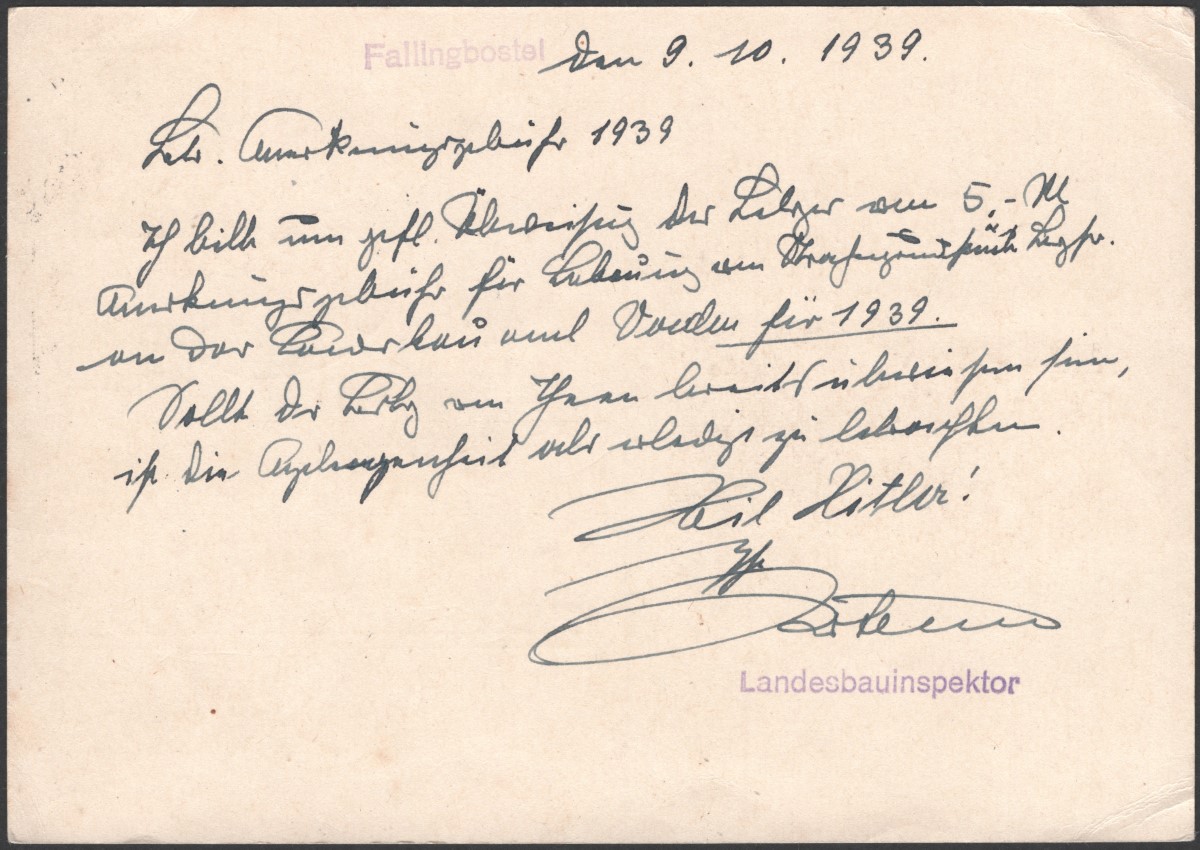 Fallingbostel den 9. 10. 1939.
Betr. Anerkennungsgebühr 1939
Ich bitte um gefl. Überweisung der Beträge von 5,- M
Anerkennungsgebühr für Bebauung von
an das Landesbauamt Verden für 1939.
Sollte der Betrag von Ihnen bereits überwiesen sein,
ist die Angelegenheit als erledigt zu betrachten.
Heil Hitler!
Landesbauinspektor